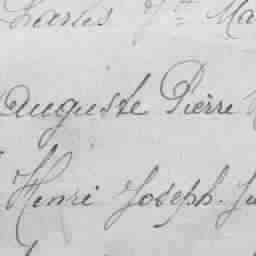 Charles Jn Ma
Auguste Pierre
Henri Joseph Ju